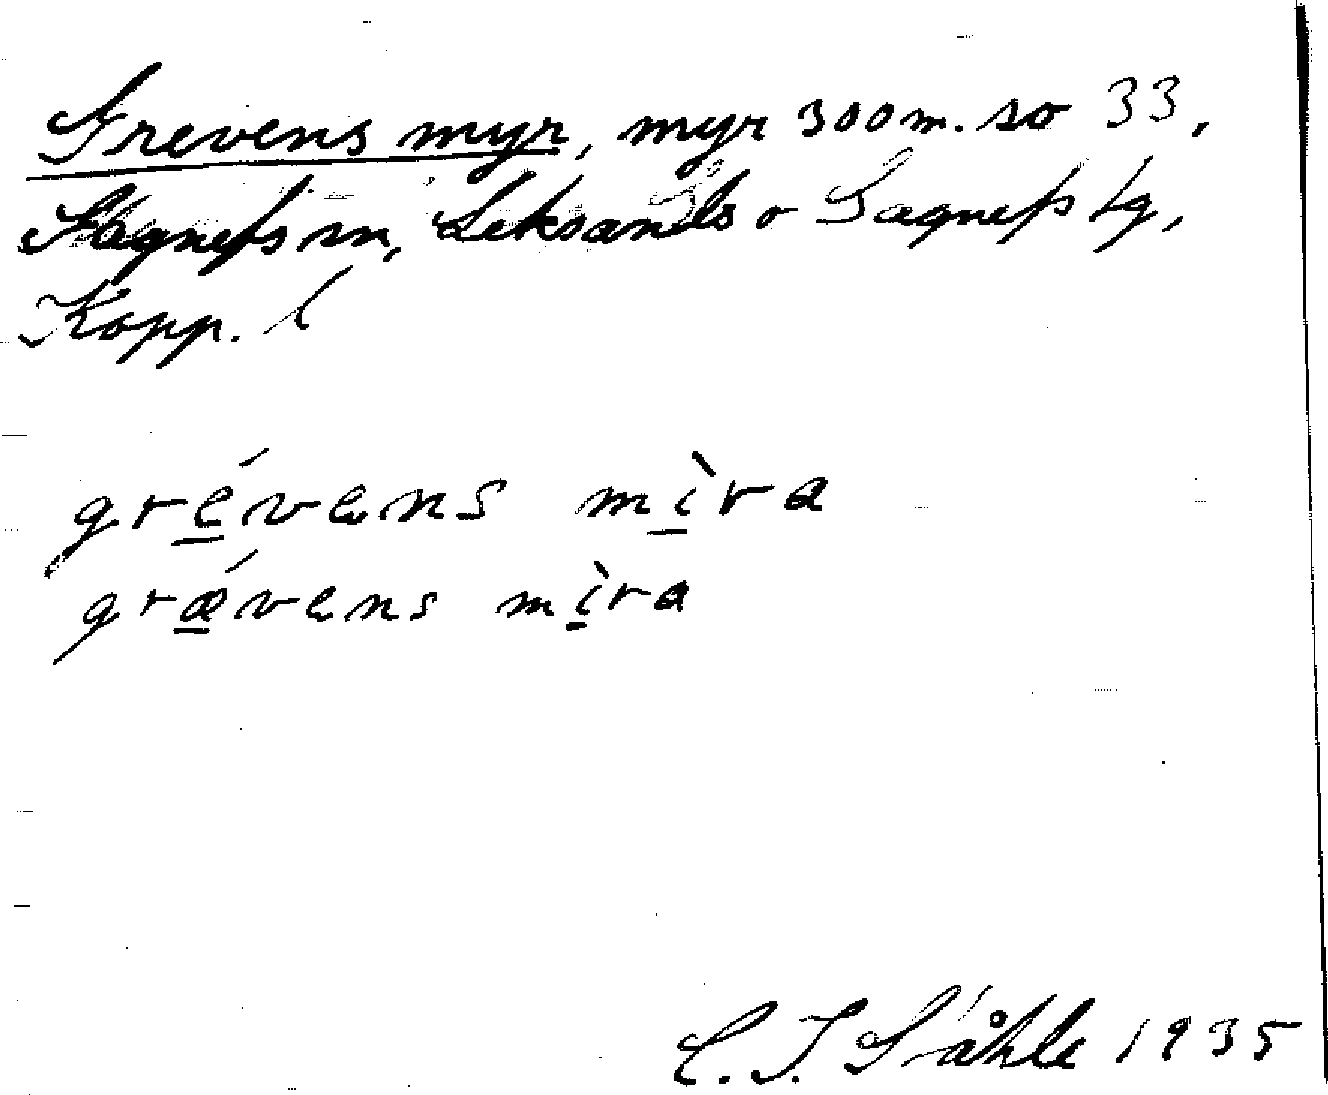 Grevens myr, myr 300 m. so 33,
Gagnefs sn, Leksands o Gagnefs tg,
Kopp. l
grévens mìra
grǽvens mìra
C. I. Ståhle 1935